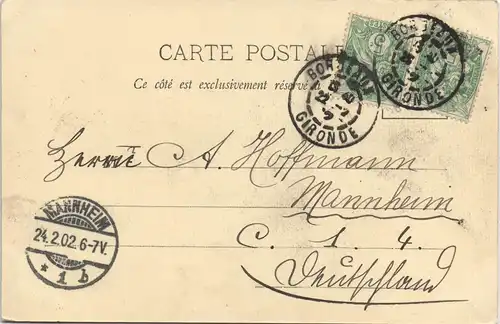 CARTE POSTALE
Ce côté est exclusivement réservé à
BORDEAUX
GIRONDE
BORDEAUX
GIRONDE
Herrn A. Hoffmann
Mannheim
C. 1. 4.
Deutschland
MANNHEIM
24.2.02.6-7V.
* 1 b